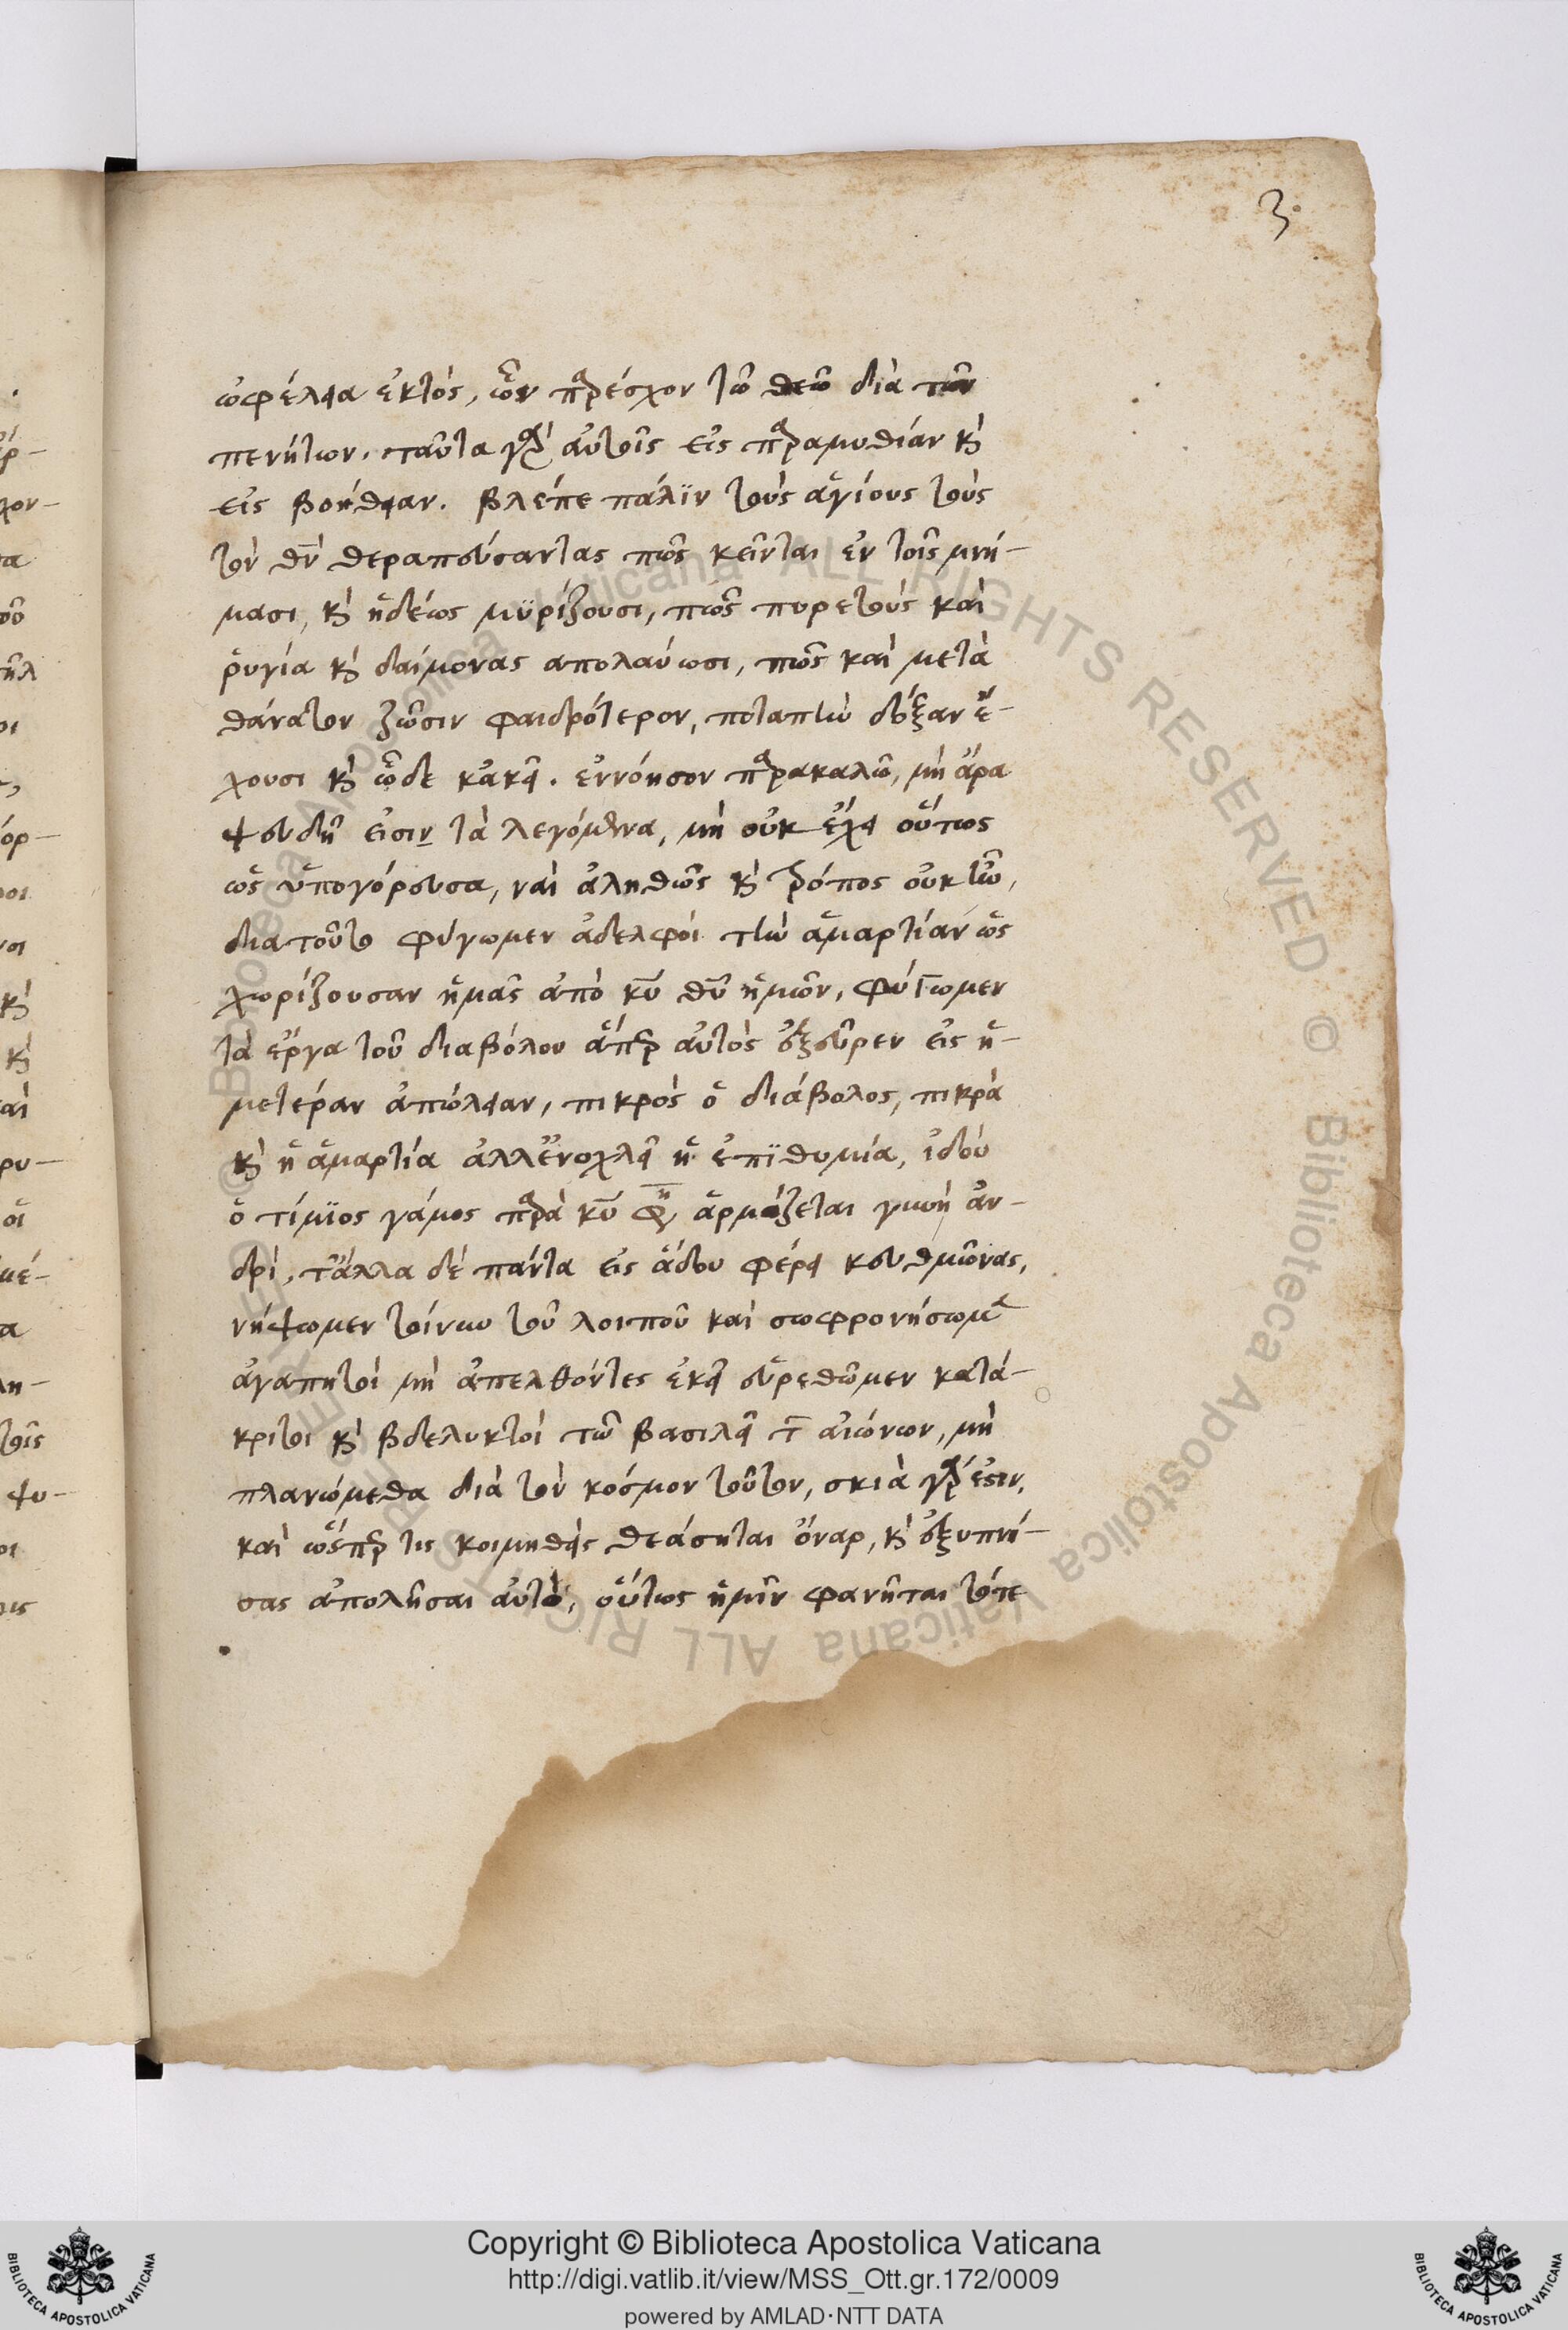 3.
ὠφέλεια ἐκτὸς, ὧν παρέσχον τῶ θεῶ διὰ τῶν
πενήτων. ταῦτα γὰρ αὐτοῖς εἰς παραμυθίαν κὶ
εἰς βοήθειαν. βλέπε πάλϊν τοὺς ἁγίους τοὺς
τὸν θν θεραπεύσαντας πῶς κεῖνται ἐν τοῖς μνή-
μασι, κὶ ἡδέως μϋρίζουσι, πῶς πυρετοὺς καὶ
ῥυγία κὶ δαίμονας ἀπολαύωσι, πῶς καὶ μετὰ
θάνατον ζῶσιν φαιδρότερον, ποταπὴν δόξαν ἔ-
χουσι κὶ ὧδε κἀκεῖ. ἐννόησον παρακαλῶ, μὴ ἄρα
ψευδῆ εἰσιν τὰ λεγόμενα, μὴ οὐκ ἔχει οὕτως
ὡς ὑπογόρευσα, ναὶ ἀληθῶς κὶ τρόπος οὐκ ἦν,
διατοῦτο φύγωμεν ἀδελφοὶ τὴν ἁμαρτίαν ὡς
χωρίζουσαν ἡμᾶς ἀπὸ κυ θυ ἡμῶν, φύγωμεν
τὰ ἔργα τοῦ διαβόλου ἅπερ αὐτὸς ἐξεῦρεν εἰς ἡ-
μετέραν ἀπώλειαν, πικρὸς ὁ διάβολος, πικρὰ
κὶ ἡ ἁμαρτία ἀλλἐνοχλεῖ ἡ ἐπϊθυμία, ἰδοὺ
ὁ τίμϊος γάμος παρὰ κυ ἁρμόζεται γυνὴ ἀν-
δρὶ, τἄλλα δὲ πάντα εἰς ἅδου φέρει κευθμῶνας,
νήψωμεν τοίνυν τοῦ λοιποῦ καὶ σωφρονήσωμεν
ἀγαπητοὶ μὴ ἀπελθόντες ἐκεῖ εὑρεθῶμεν κατά-
κριτοι κὶ βδελυκτοὶ τῶ βασιλεῖ τ αἰώνων, μὴ
πλανώμεθα διὰ τὸν κόσμον τοῦτον, σκιὰ γάρ ἐστιν,
καὶ ὥσπερ τις κοιμηθεὶς θεάσηται ὄναρ, κὶ ἐξυπνή-
σας ἀπολῆσαι αὐτὸ, οὕτως ἡμῖν φανῆται τότε
Copyright © Biblioteca Apostolica Vaticana
http://digi.vatlib.it/view/MSS_Ott.gr.172/0009
powered by AMLAD·NTT DATA